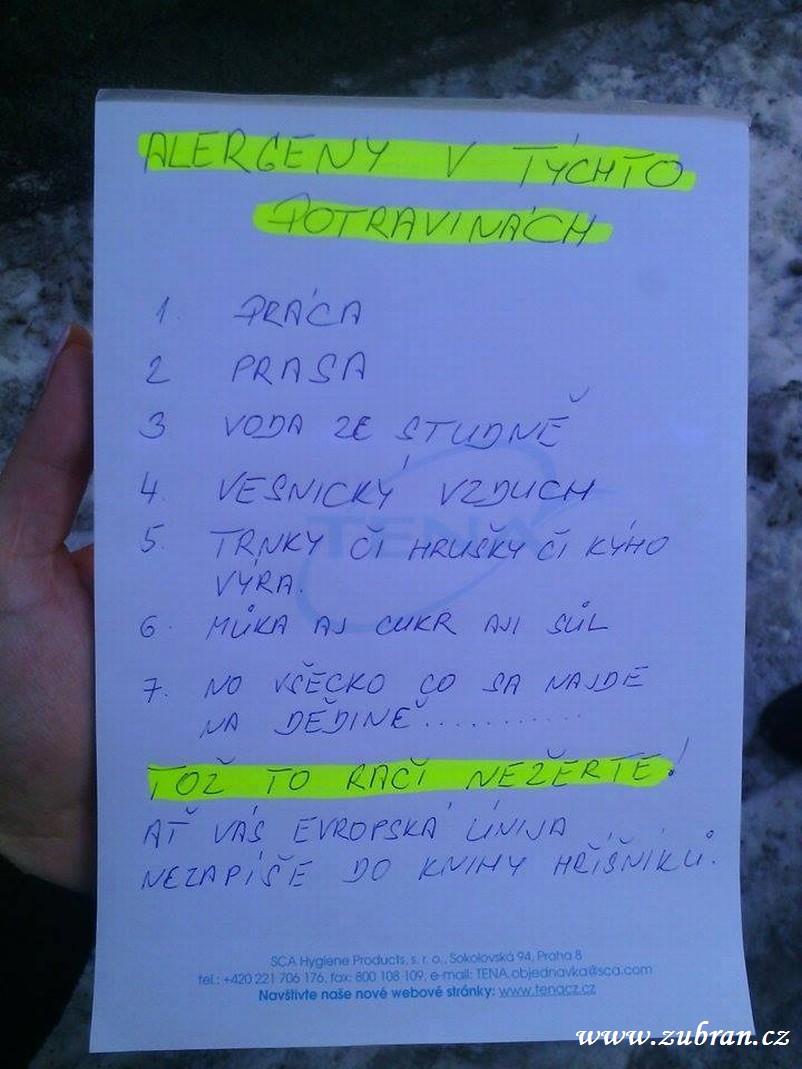 ALERGENY V TÝCHTO
POTRAVINÁCH
1. PRÁCA
2 PRASA
3 VODA ZE STUDNĚ
4. VESNICKÝ VZDUCH
TENA
5. TRNKY ČI HRUŠKY ČI KÝHO
VÝRA.
6. MŮKA AJ CUKR AJI SŮL
7. NO VŠECKO CO SA NAJDE
NA DĚDINĚ............
TOŽ TO RAČI NEŽERTE!
AŤ VÁS EVROPSKÁ ÚNIJA
NEZAPÍŠE DO KNIHY HŘÍŠNÍKŮ.
SCA Hygiene Products, s. r. o., Sokolovská 94, Praha 8
tel.: +420 221 706 176, fax: 800 108 109, e-mail: TENA.objednavka@sca.com
Navštivte naše nové webové stránky: www.tenacz.cz
www.zubran.cz